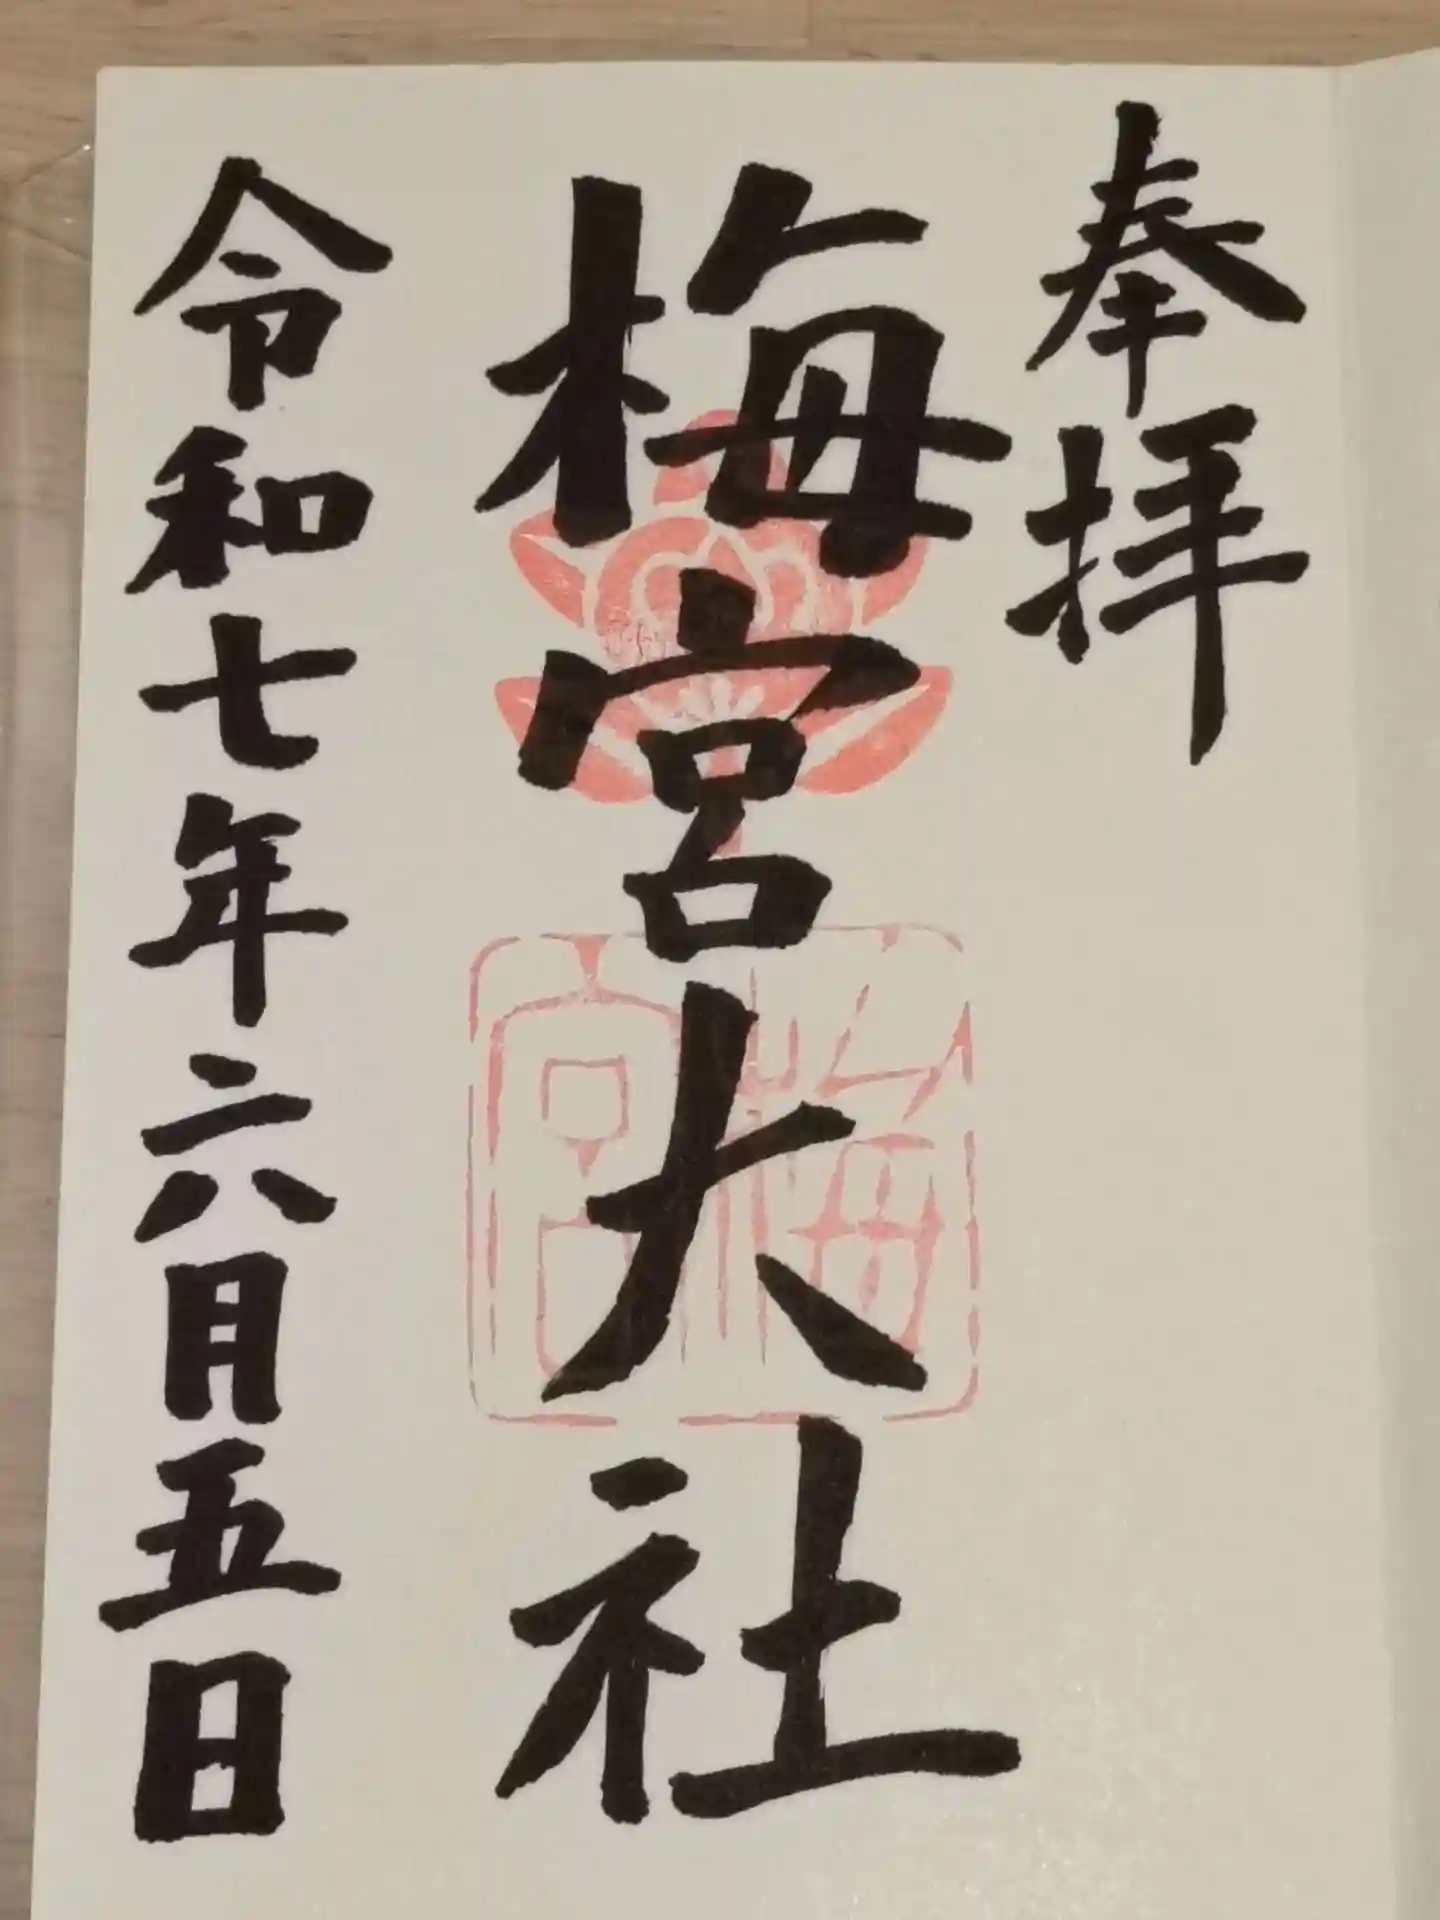 奉拝
梅宮大社
梅宮
令和七年六月五日